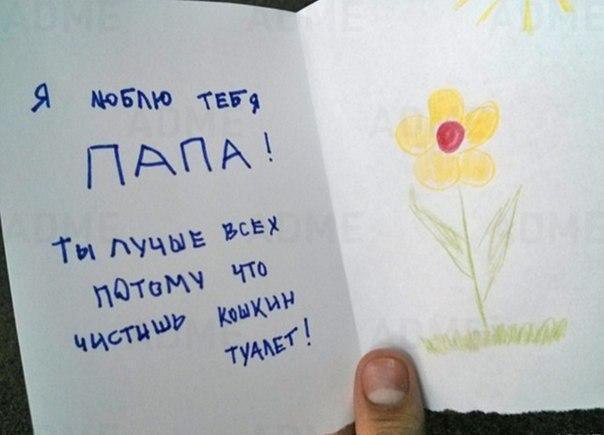 Я люблю ТЕБЯ
ПАПА!
ТЫ ЛУЧЫЕ ВСЕХ
ПОТОМУ ЧТО
ЧИСТИШЬ КОШКИН
ТУАЛЕТ!